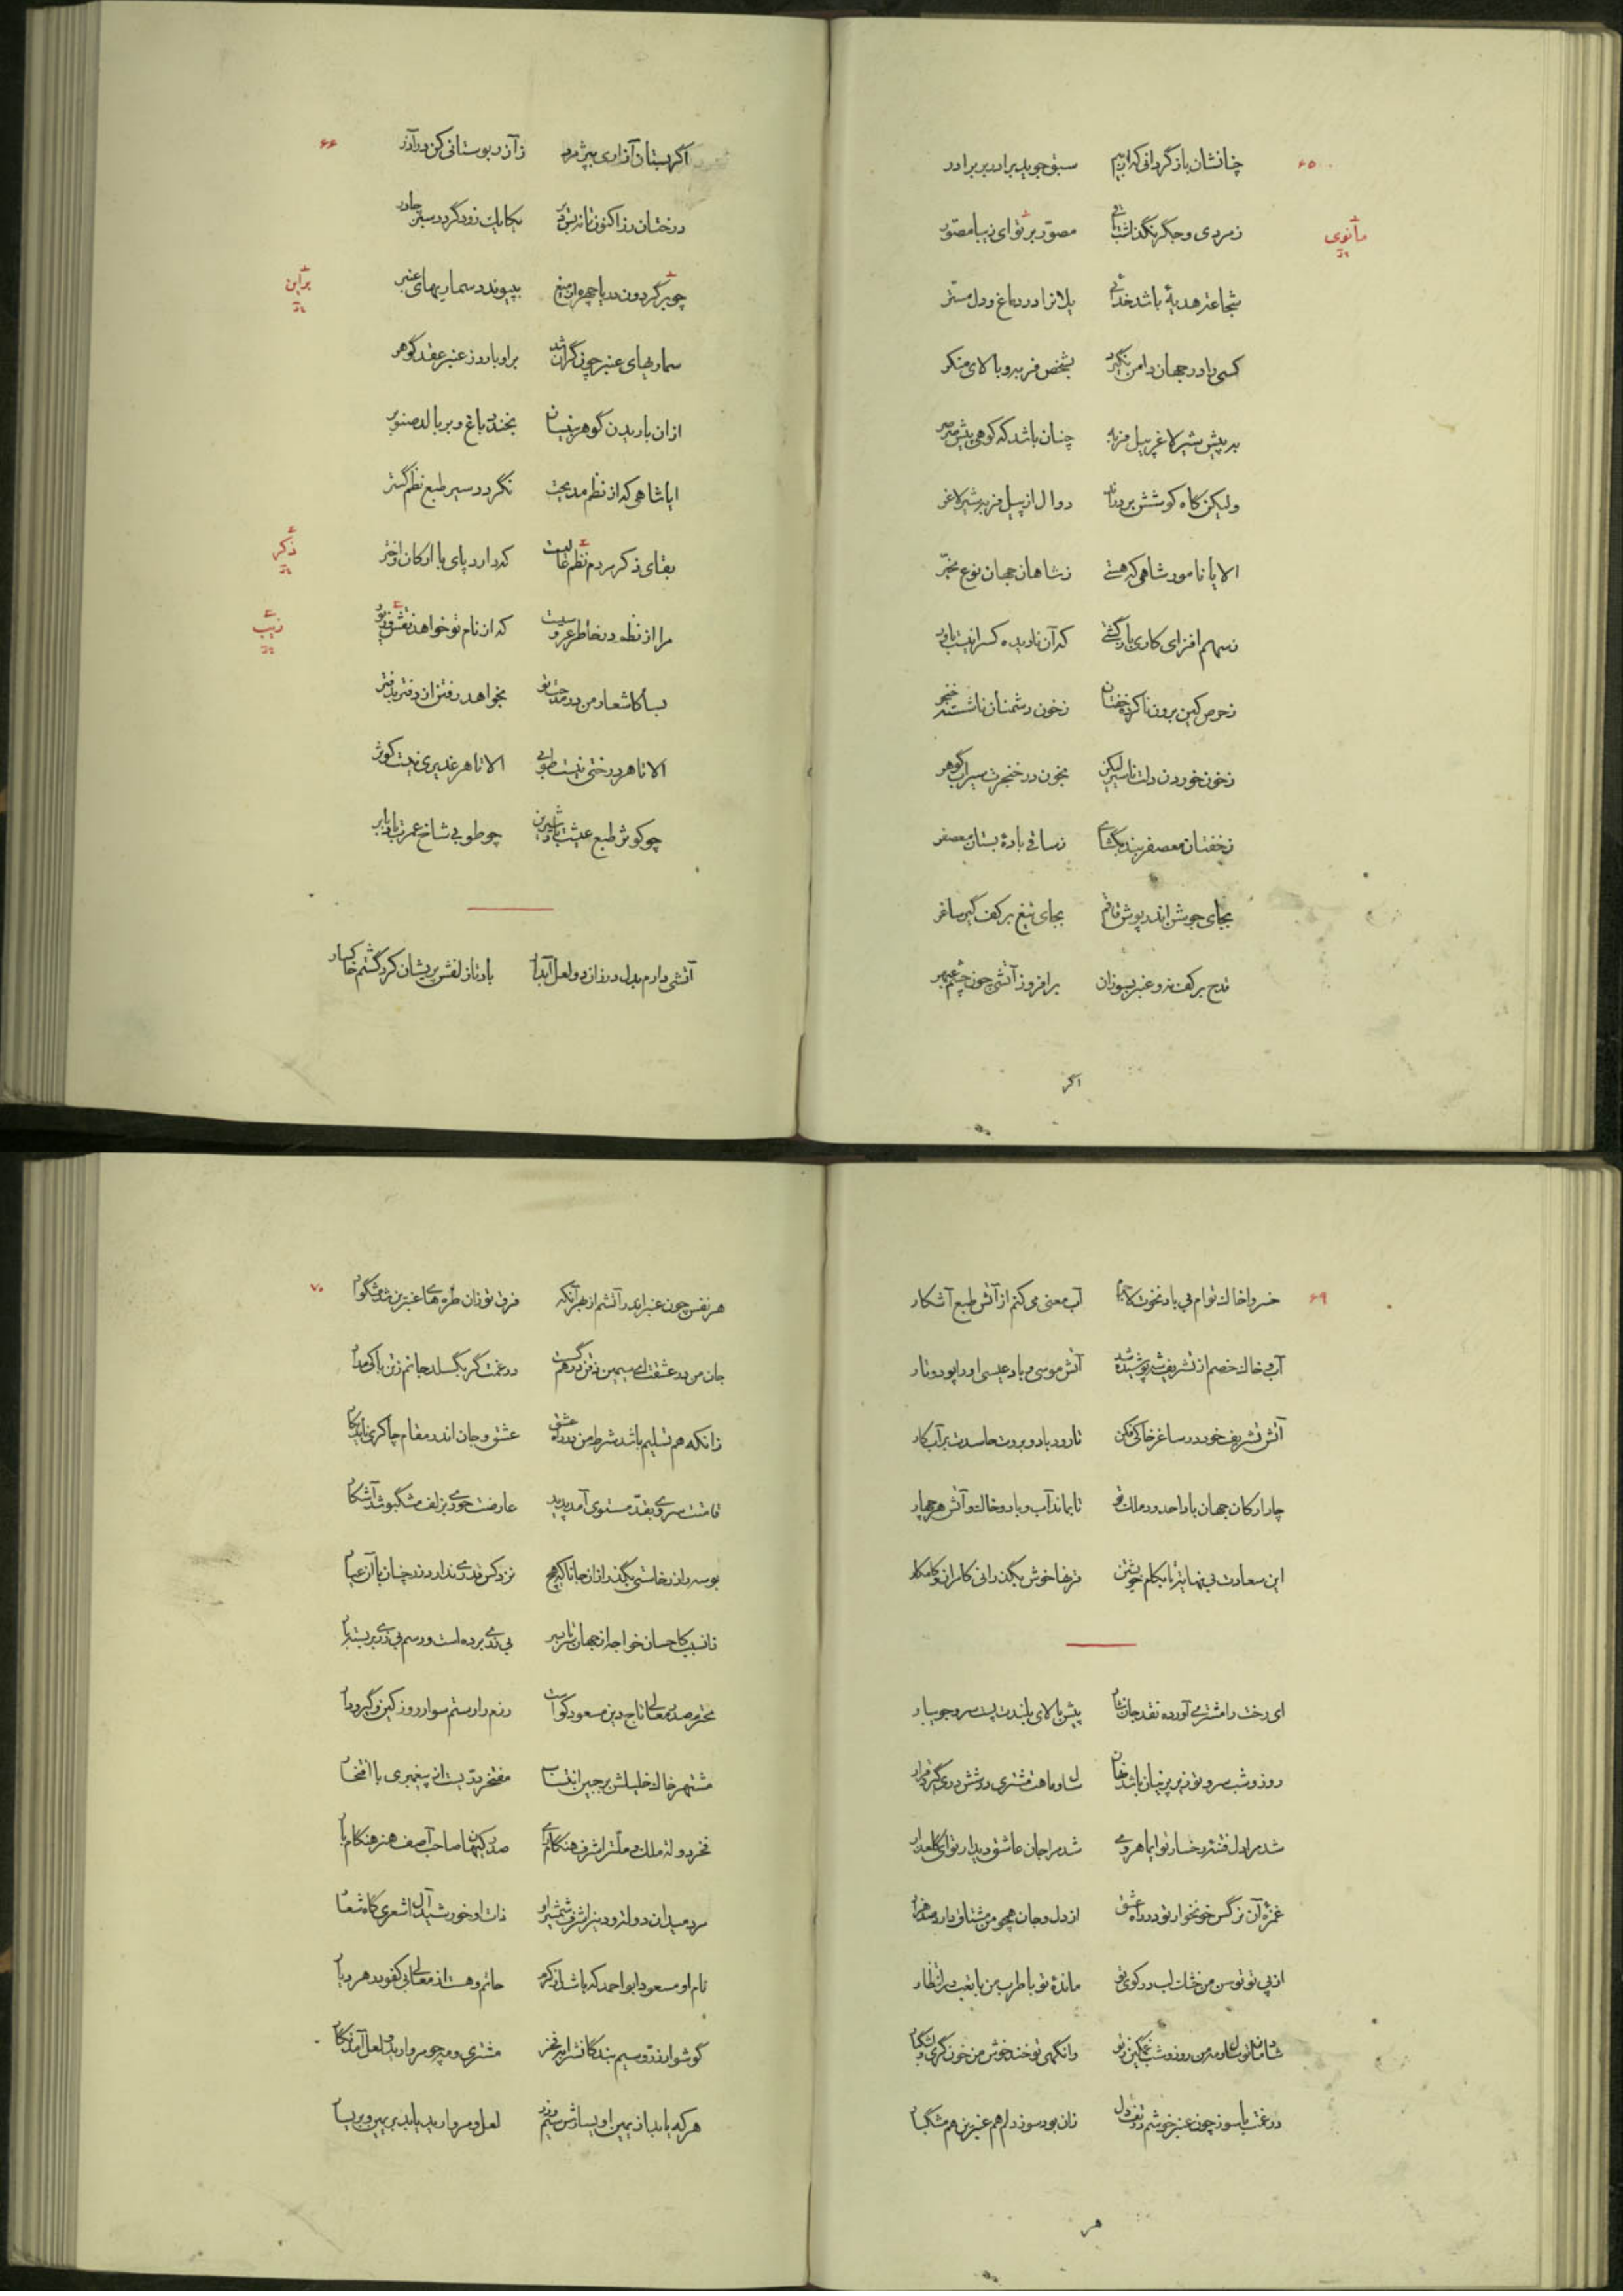 ۶۵
چنانشان باز گردانی که از بیم سبق جوید برادر بر برادر
ز مردی و جگر نگذاشت مصور بر تو ای زیبا مصور
مانوی
شجاعت هدیهٔ باشد خدائی یلانرا در دماغ و دل مستر
کسی را در جهان دامن نگیرد بشخص فربه و بالای منکر
به پیش شیر لاغر پیل فربه چنان باشد که کوهی پیش صرصر
ولیکن گاه کوشش بردراند دوال از پیل فربه شیر لاغر
الا یا نامور شاهی که هستی ز شاهان جهان نوع مخیر
ز سهم افزای کاری باز گشتی که آن نادیده کس را نیست باور
ز حرص کین برون ناکرده خفتان ز خون دشمنان ناشسته خنجر
ز خون خوردن دلت ناسیر لیکن بخون در خنجرت سیراب گوهر
ز خفتان معصفر بند بگشای ز ساقی بادهٔ بستان معصفر
بجای جوشن اندر پوش قاقم بجای تیغ بر کف گیر ساغر
قدح بر کف نه و عنبر بسوزان بر افروز آتشی چون چشم عبهر
اگر
۶۶
اگر بستان آزاری بپژمرد ز آذر بوستانی کن در آذر
درختان رز اکنون تا نه بس دیر یکایک زرد گردد سبز چادر
چو بر گردون دریا چهره از میغ بپیوندد سماریهای عنبر
بر این
سماریهای عنبر چون گران شد بر او بارد ز عنبر عقد گوهر
از آن باریدن گوهر به نیسان بخندد باغ و بر بالد صنوبر
ایا شاهی که از نظم مدیحت نگردد سیر طبع نظم گستر
بقای ذکر مردم نظم عالیست که دارد پای با ارکان و اختر
ذکر
مرا از نظم در خاطر عروسیست که از نام تو خواهد نقش و زیور
زیب
بسا کاشعار من در مدحت تو بخواهد رفتن از دفتر بدفتر
الا تا هر درختی نیست طوبی الا تا هر غدیری نیست کوثر
چو کوثر طبع عیشت باد شیرین چو طوبی شاخ عمرت باد پر بر
آتشی دارم بدل در زان دو لعل آبدار باد تا زلفش پریشان کرد گشتم خاکسار
۶۹
خسروا خاک توام بی باد نخوت آب معنی می کنم از آتش طبع آشکار
آب و خاک خصم از تشریف شه پوشیده شد آتش موسی و باد عیسی او را پود و تار
آتش تشریف خود در ساغر خاکی فکن تا رود باد و بروت حاسدت بر آب کار
چار ارکان جهان با واحد در ملک تو تا بماند آب و باد و خاک و آتش هر چهار
این سعادت بی نهایت تا بکام خویشتن قرنها خوش بگذرانی کامران و کامکار
ای رخت را مشتری آورده نقد جان نثار پیش بالای بلندت پست سرو جویبار
روز و شب سرو تو زیر پرنیان باشد نهان سال و ماهت مشتری در شش دری گیرد قرار
شد مرا دل فتنه رخسار تو ای ماهروی شد مرا جان عاشق دیدار تو ای گلعذار
غمزهٔ آن نرگس خونخوار تو در راه عشق از دل و جان همچو من مشتاق دارد صد هزار
از پی تو توسن من خشک لب در کوی تو ماندهٔ تو با طرب من با تعب در انتظار
شادمان تو سال و مه من روز و شب غمگین ز تو وانگهی تو خنده خوش من خون گری
در غمت با سوز چون عنبر خوشم وز تف دل زان بود سوز دلم هم عنبرین هم مشکبار
هر
۷۰
هر نفس چون عنبر اندر آتشم از بهر آنکه فرق تو زان طره های عنبرین شد مشکبار
جان من در عشقت ای سیمین ذقن در هم گسست در غمت گر بگسلد جانم ز تن باکی مدار
زانکه هم تسلیم باشد شرط من در راه عشق عشق و جان اندر مقام چاکری ناید بکار
قامتت سروی بقد مستوی آمد پدید عارضت حوری بزلف مشکبو شد آشکار
بوسه را زر خاستی بگذر از آن جانا که هیچ نزد کس قدری ندارد زر چنان با آن عیار
تا نسیب کاحسان خواجه از جهان بی زری برده است و رسم بی زری
محترم صدر معالی تاج دین مسعود کوست رزم را رستم سوار روز کین و گیر و دار
مشتهر خاک خلیلش بر جبین انتساب مفتخر پیغمبری با افتخار
فخر دولت ملک و ملت را شرف هنگام صدر کیهان صاحب آصف هنر هنگام بار
مرد میدان دولت و دین را شرف شمشیر او ذات او خورشید اشعری گاه شعار
نام او مسعود ابو احمد که باشد از کرم حاتم و هست از معالی بی کفو در هر دیار
گوشوار زر و سیم بندگانش را بفخر مشتری و مه چو مروارید و لعل آمد بکار
هر که یابد از یمین او یسارش سیم و زر لعل و مروارید یابد بر یمین و بر یسار